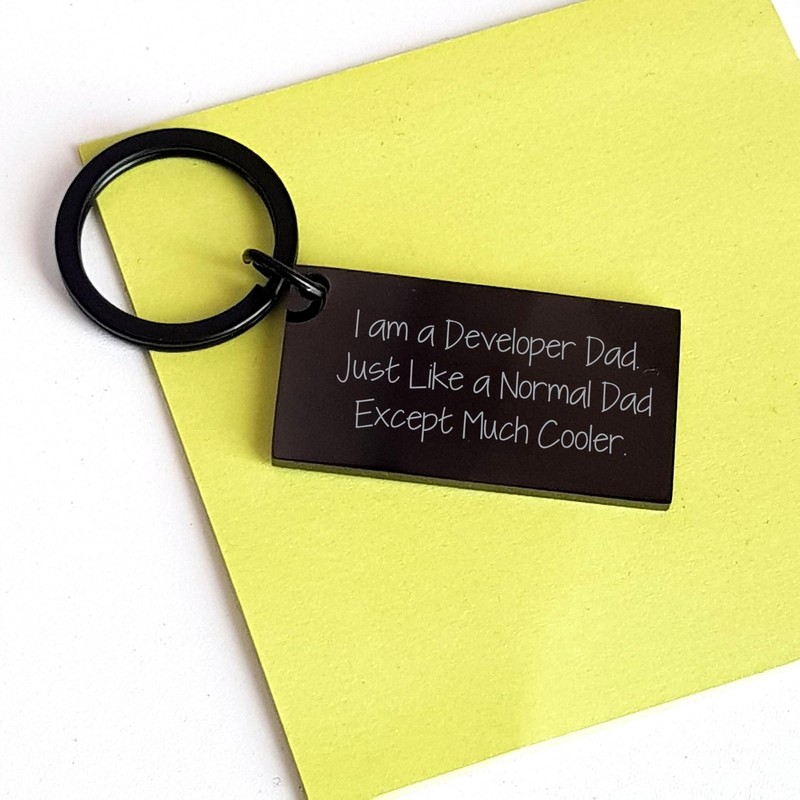 I am a Developer Dad.
Just Like a Normal Dad
Except Much Cooler.